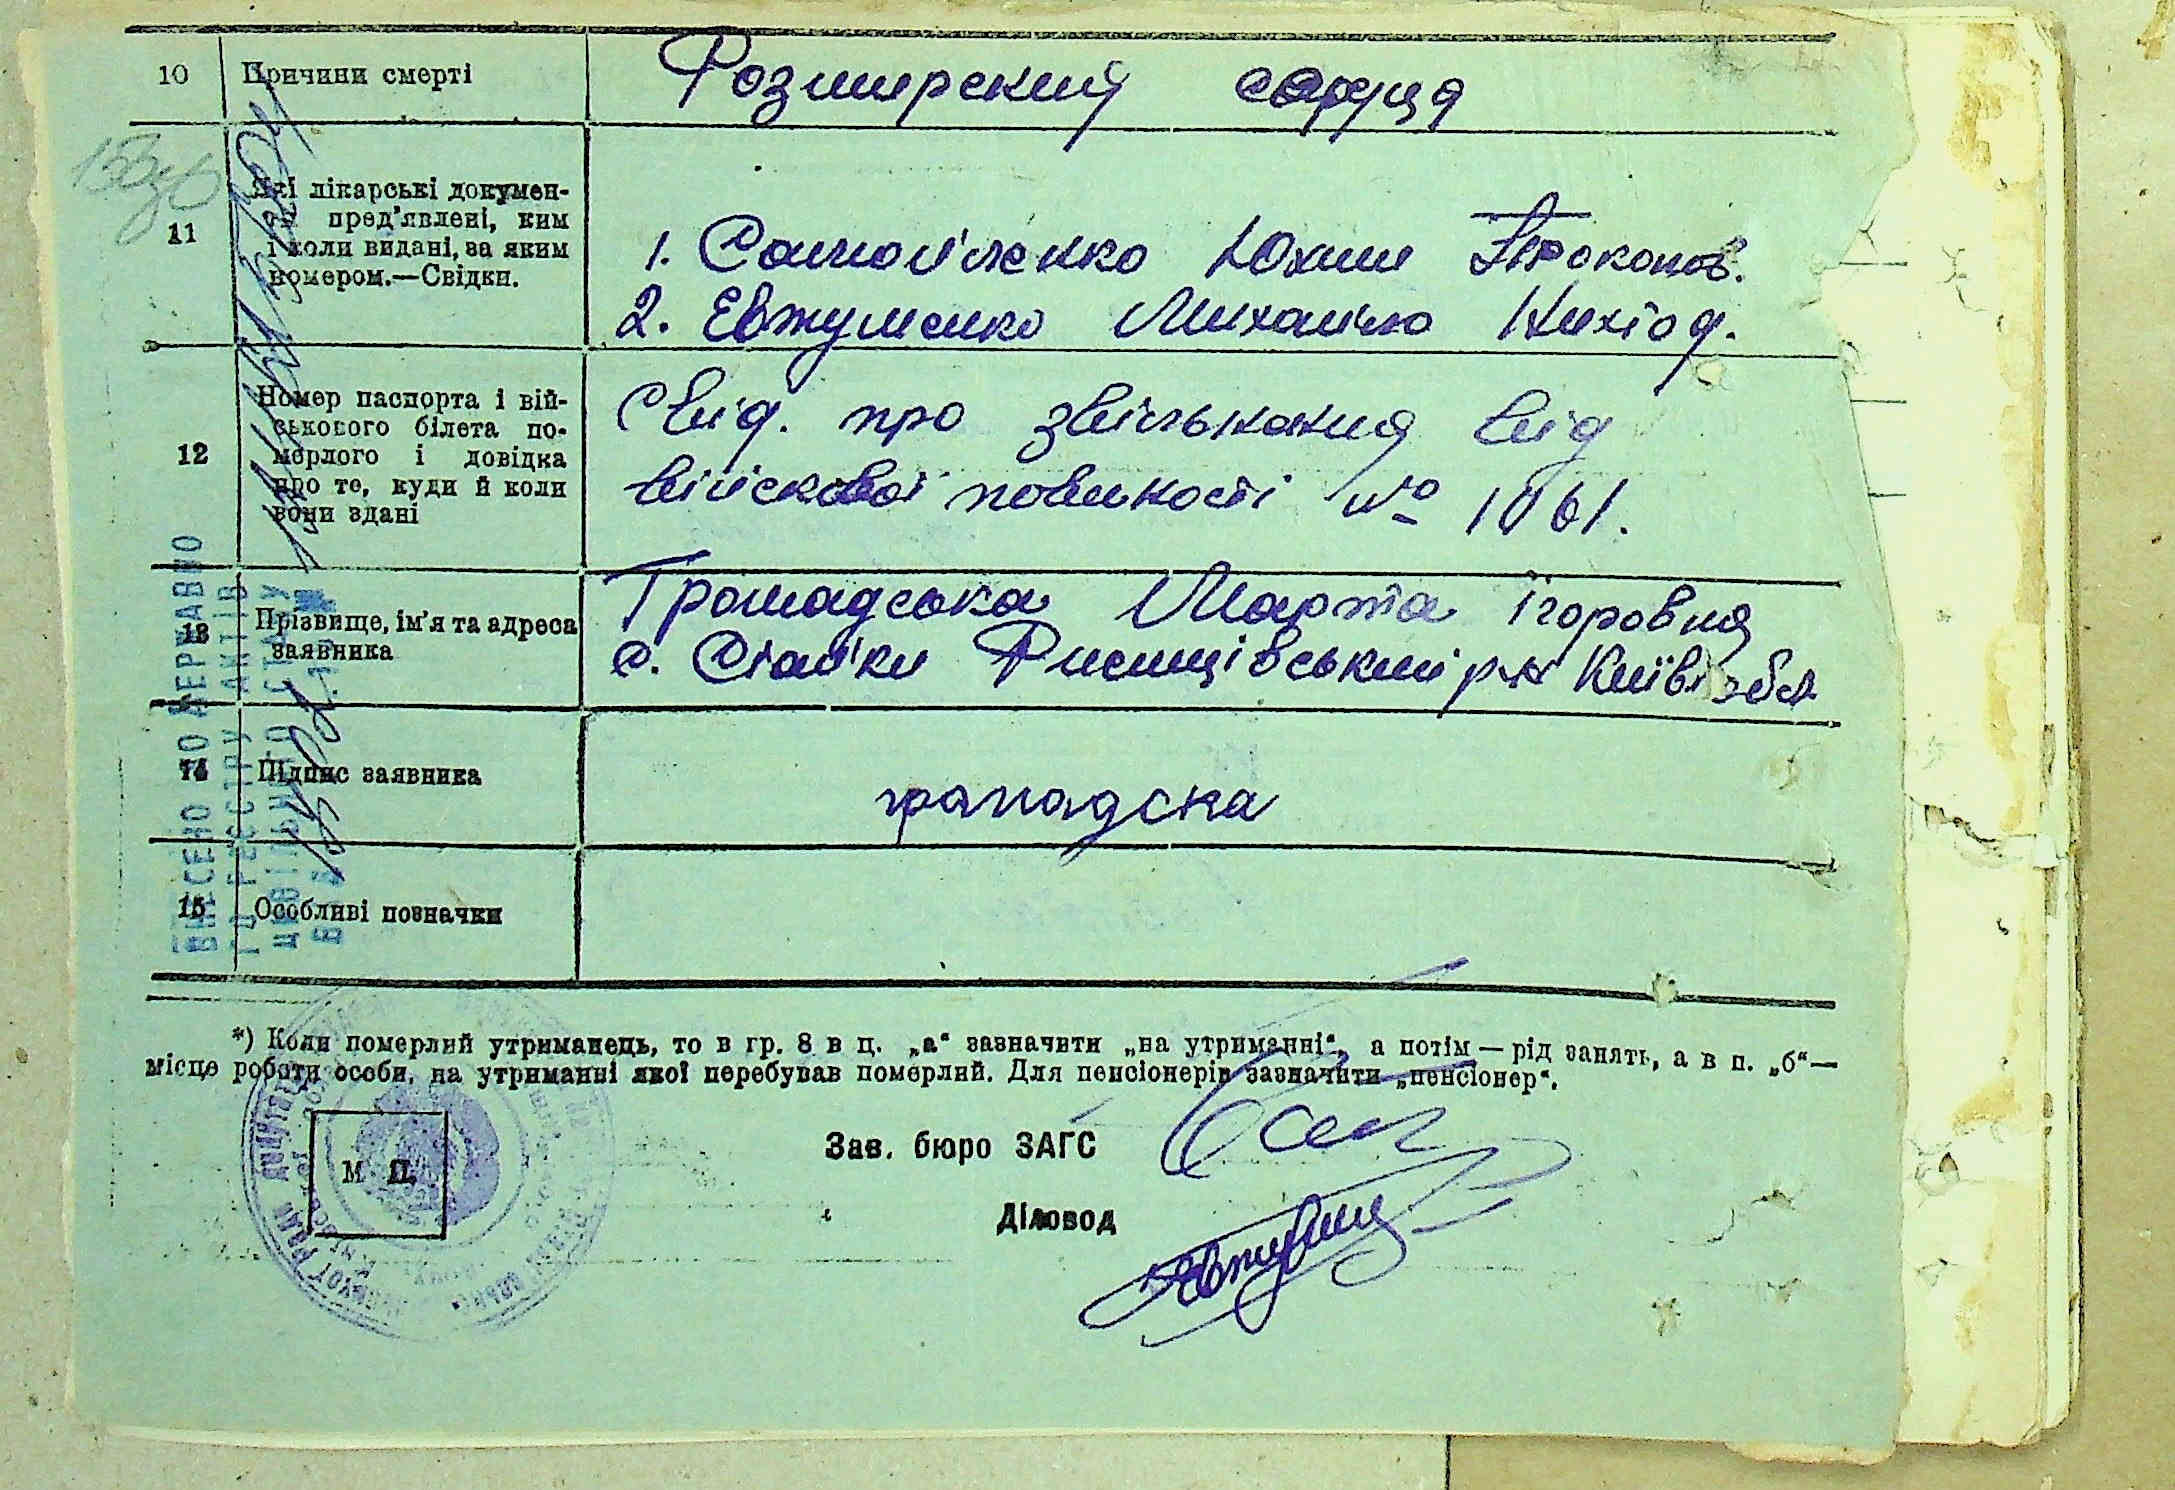 10 Причини смерті Розширский сердця
11 Які лікарські докумен-
ти пред'явлені, ким
і коли видані, за яким
номером.—Свідки.
1. Самойленко Юхим Прокопов.
2. Евтушенко Михайло
12 Номер паспорта і вій-
ськового білета по-
мерлого і довідка
про те, куди й коли
вони здані
Свід. про звільнання від
війскової повиності № 1061.
13 Прізвище, ім'я та адреса
заявника
Громадська Марта Ігоровна
с. Стайки Ржищівський р-н Київ обл
14 Підпис заявника
грамадска
15 Особливі позначки
ВНЕСЕНО ДО ДЕРЖАВНО
ГО РЕЄСТРУ АКТІВ
ЦИВІЛЬНОГО СТАНУ
*) Коли померлий утриманець, то в гр. 8 в ц. „а“ зазначити „на утриманні“, а потім — рід занять, а в п. „б“—
місце роботи особи, на утриманні якої перебував померлий. Для пенсіонерів зазначити „пенсіонер“.
Зав. бюро ЗАГС
М. П.
Діловод